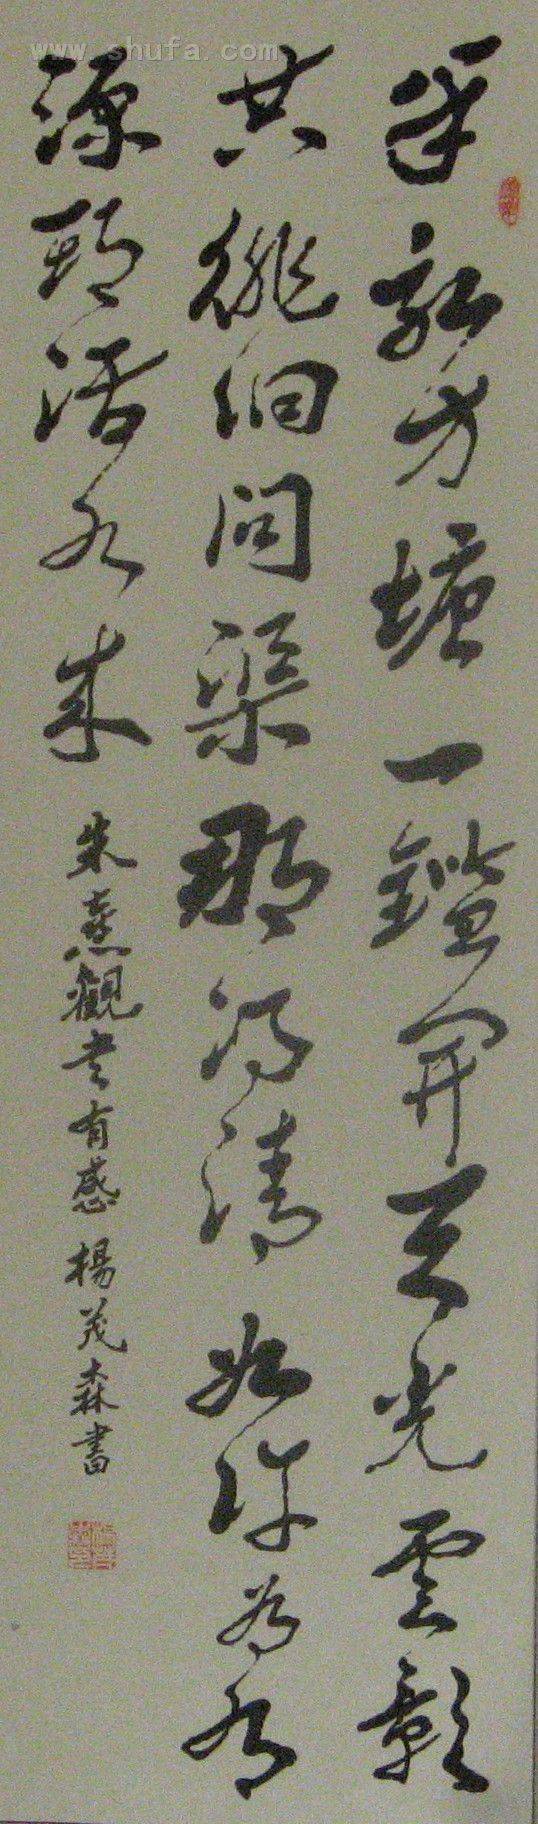 www.shufa.com
半畝方塘一鑑開天光雲影
共徘徊問渠那得清如許為有
源頭活水來
朱熹觀書有感 楊茂森書